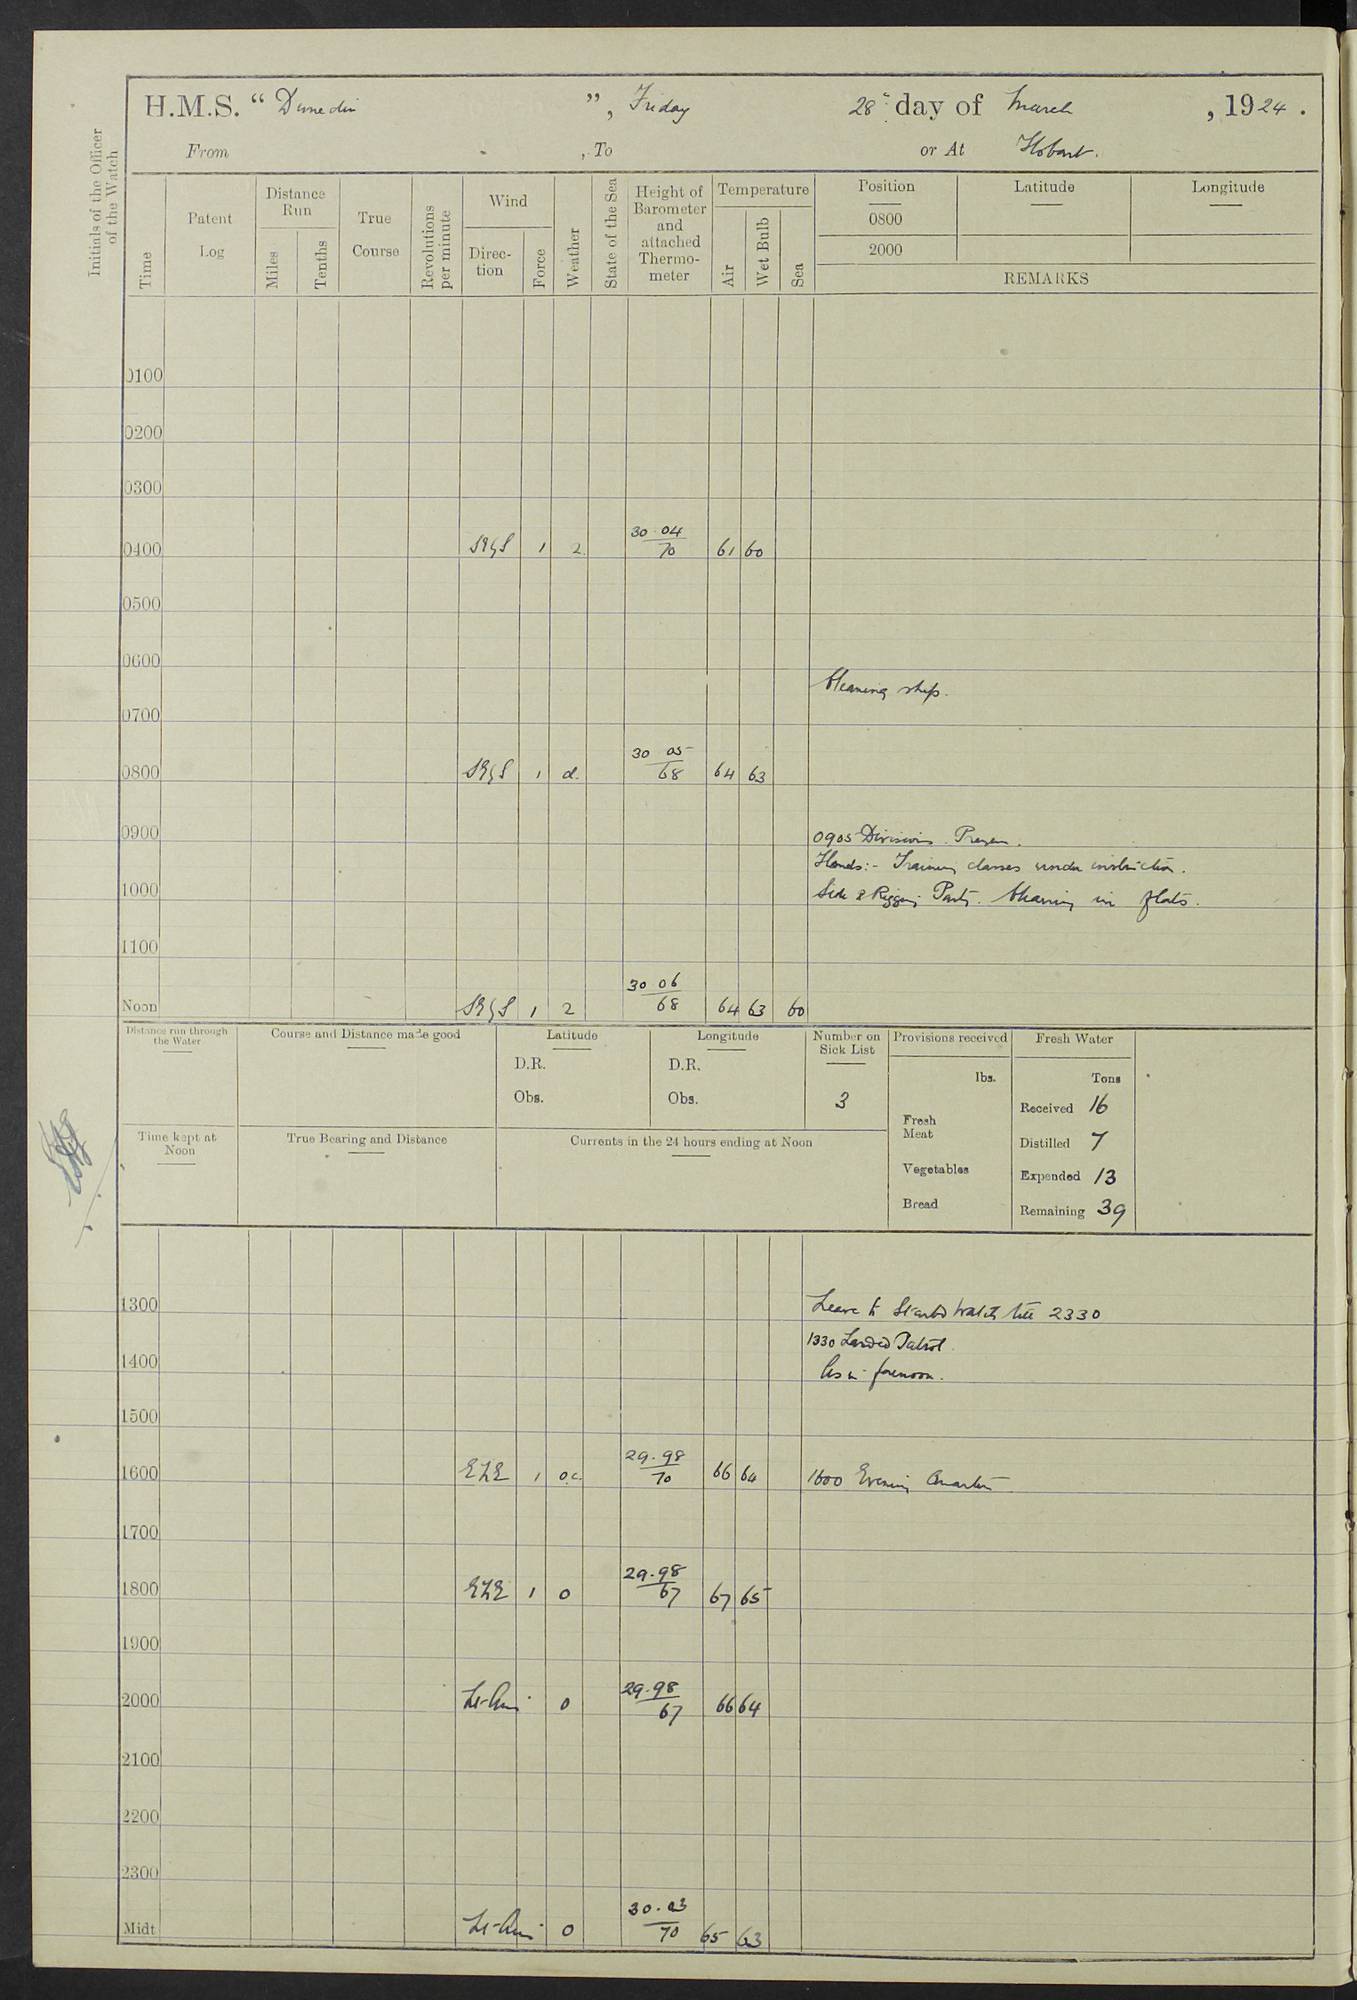 H.M.S. “ Dunedin ”, Friday 28th day of March, 1924.
From , To or At Hobart.
Initials of the Officer of the Watch
Time
Patent Log
Distance Run
Miles
Tenths
True Course
Revolutions per minute
Wind
Direc-tion
Force
Weather
State of the Sea
Height of Barometer and attached Thermo-meter
Temperature
Air
Wet Bulb
Sea
Position Latitude Longitude
0800
2000
REMARKS
0100
0200
0300
0400 1 2 30.04/70 61 60
0500
0600
Cleaning ship.
0700
0800 1 d. 30 05/68 64 63
0900 0905 Divisions. Prayers.
Hands:- Training classes under instruction.
1000 Side & Rigging Party. Cleaning in flats.
1100
Noon 1 2 30 06/68 64 63 60
Distance run through the Water
Course and Distance made good
Latitude
D.R.
Obs.
Longitude
D.R.
Obs.
Number on Sick List
3
Provisions received
lbs.
Fresh Meat
Vegetables
Bread
Fresh Water
Tons
Received 16
Distilled 7
Expended 13
Remaining 39
Time kept at Noon
True Bearing and Distance
Currents in the 24 hours ending at Noon
1300 Leave to Starbd Watch till 2330
1330 Landed Patrol.
1400 As in forenoon.
1500
1600 1 o.c. 29.98/70 66 64 1600 Evening Quarters
1700
1800 1 o 29.98/67 67 65
1900
2000 Lt-Airs o 29.98/67 66 64
2100
2200
2300
Midt Lt-Airs o 30.03/70 65 63